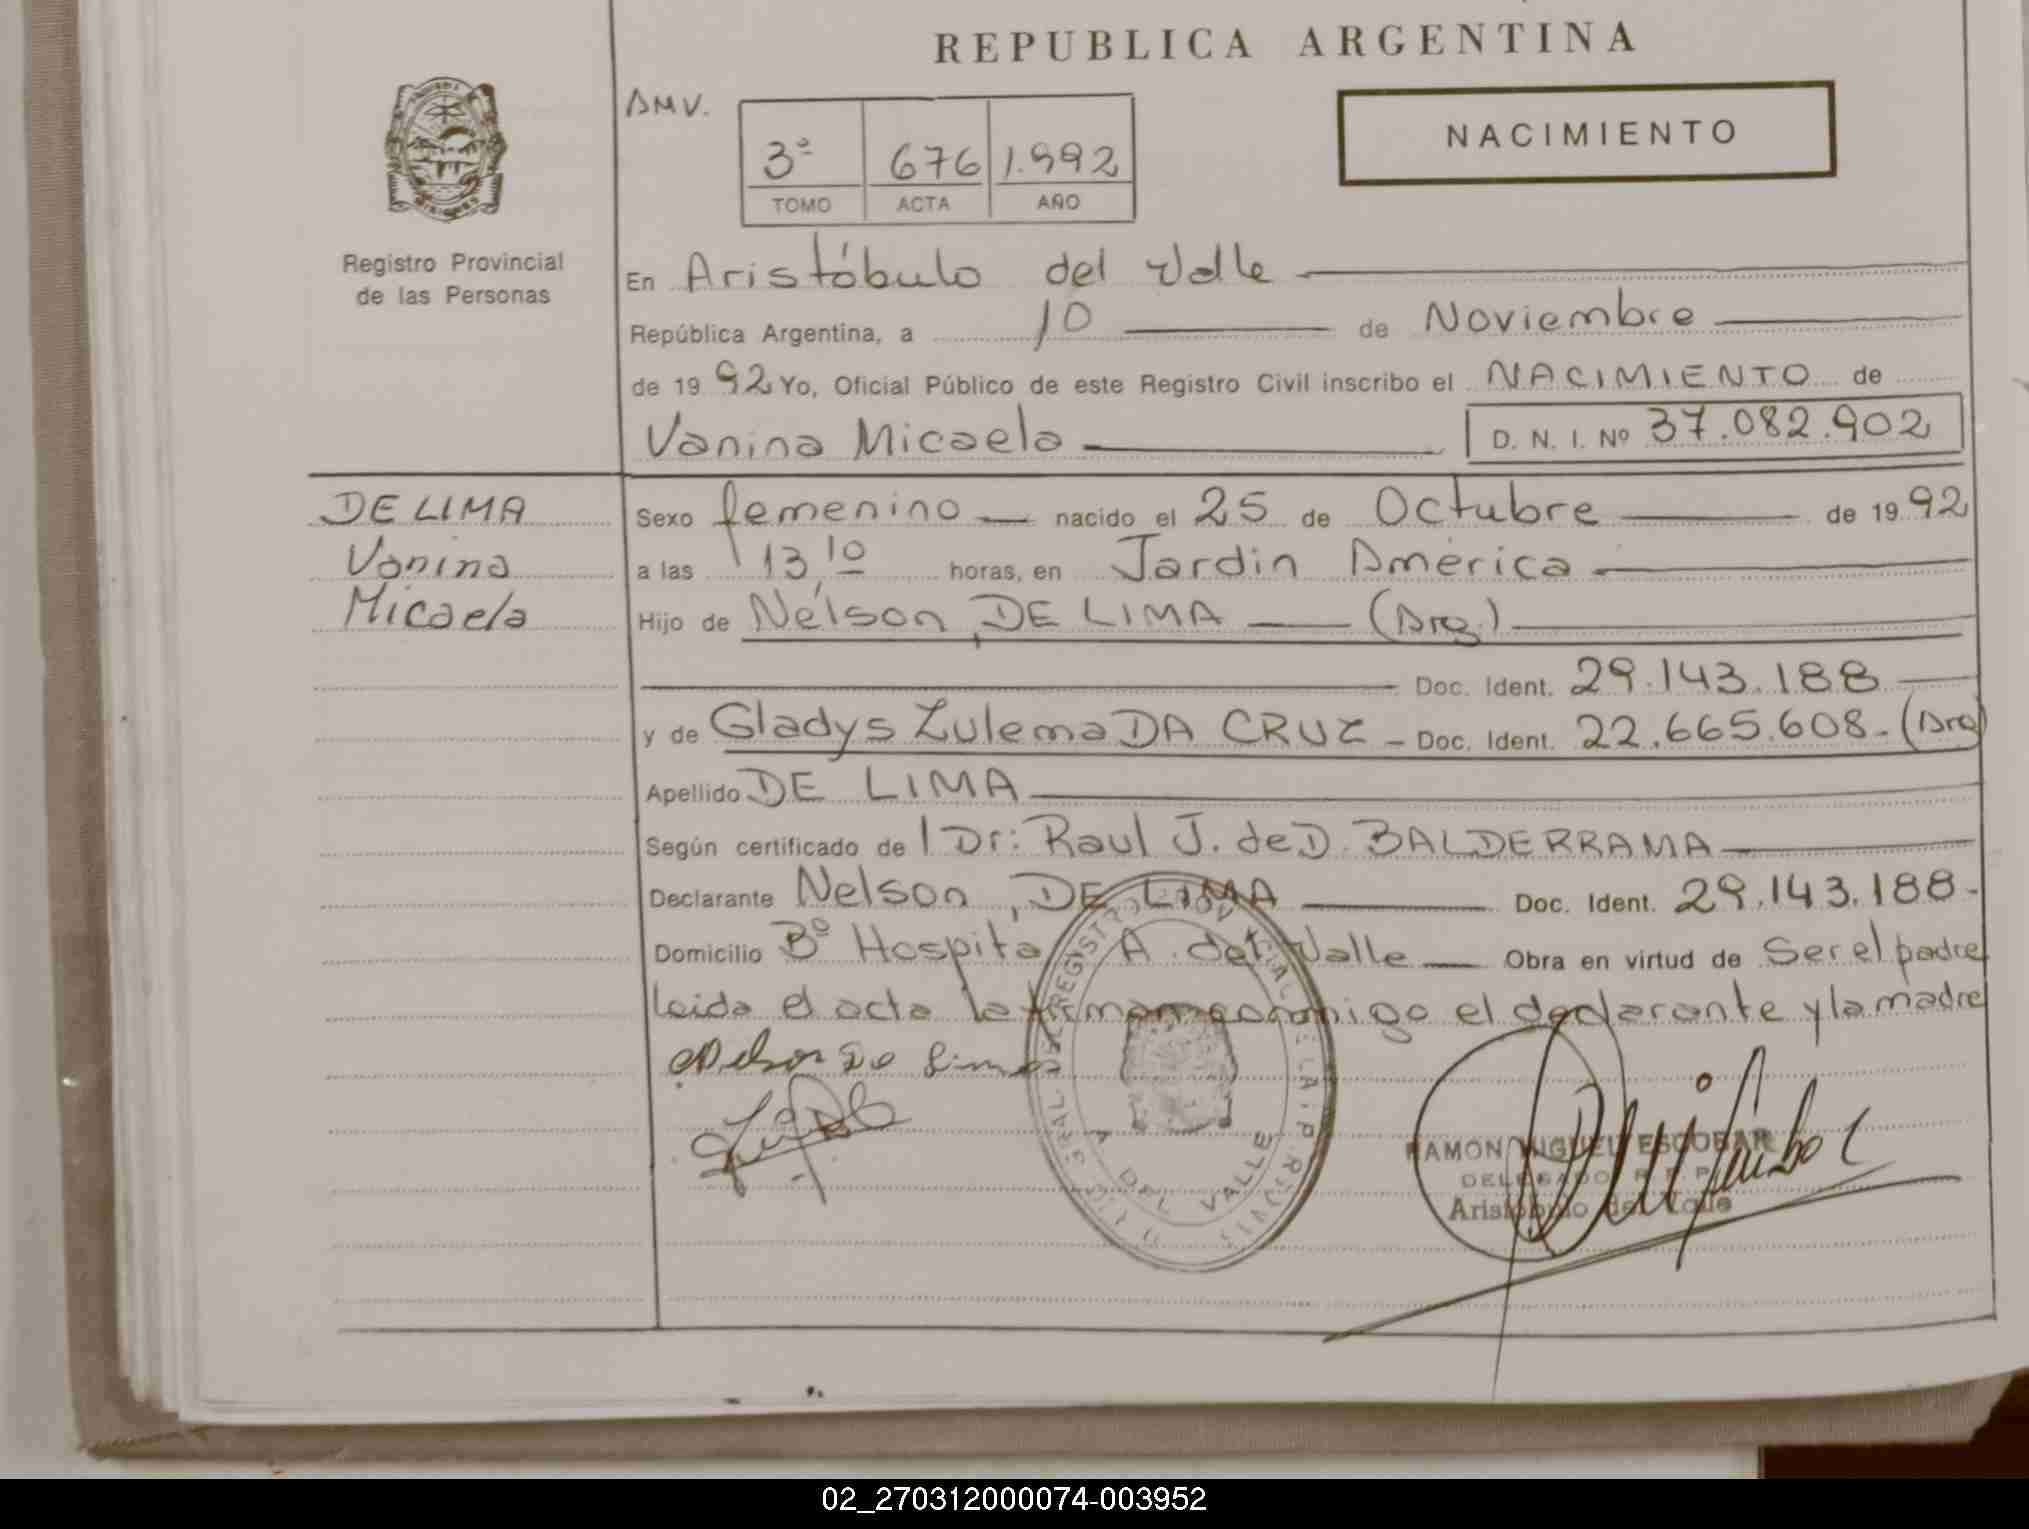 REPUBLICA ARGENTINA
AMV.
3º 676 1.992
TOMO ACTA AÑO
NACIMIENTO
Registro Provincial
de las Personas
En Aristóbulo del Valle
República Argentina, a 10 de Noviembre
de 1992 Yo, Oficial Público de este Registro Civil inscribo el NACIMIENTO de
Vanina Micaela D. N. I. Nº 37.082.902
DE LIMA
Vanina
Micaela
Sexo femenino nacido el 25 de Octubre de 1992
a las 13,10 horas, en Jardin América
Hijo de Nélson, DE LIMA (Arg.)
Doc. Ident. 29.143.188
y de Gladys Zulema DA CRUZ - Doc. Ident. 22.665.608.- (Arg)
Apellido DE LIMA
Según certificado del Dr: Raul J. de D. BALDERRAMA
Declarante Nelson, DE LIMA Doc. Ident. 29.143.188-
Domicilio Bº Hospital A. del Valle Obra en virtud de Ser el padre
leida el acta la firman conmigo el declarante y la madre
Nelson De Lima
RAMON MIGUEL ESCOBAR
DELEGADO R. P. P.
Aristóbulo del Valle
A. DEL VALLE
02_270312000074-003952